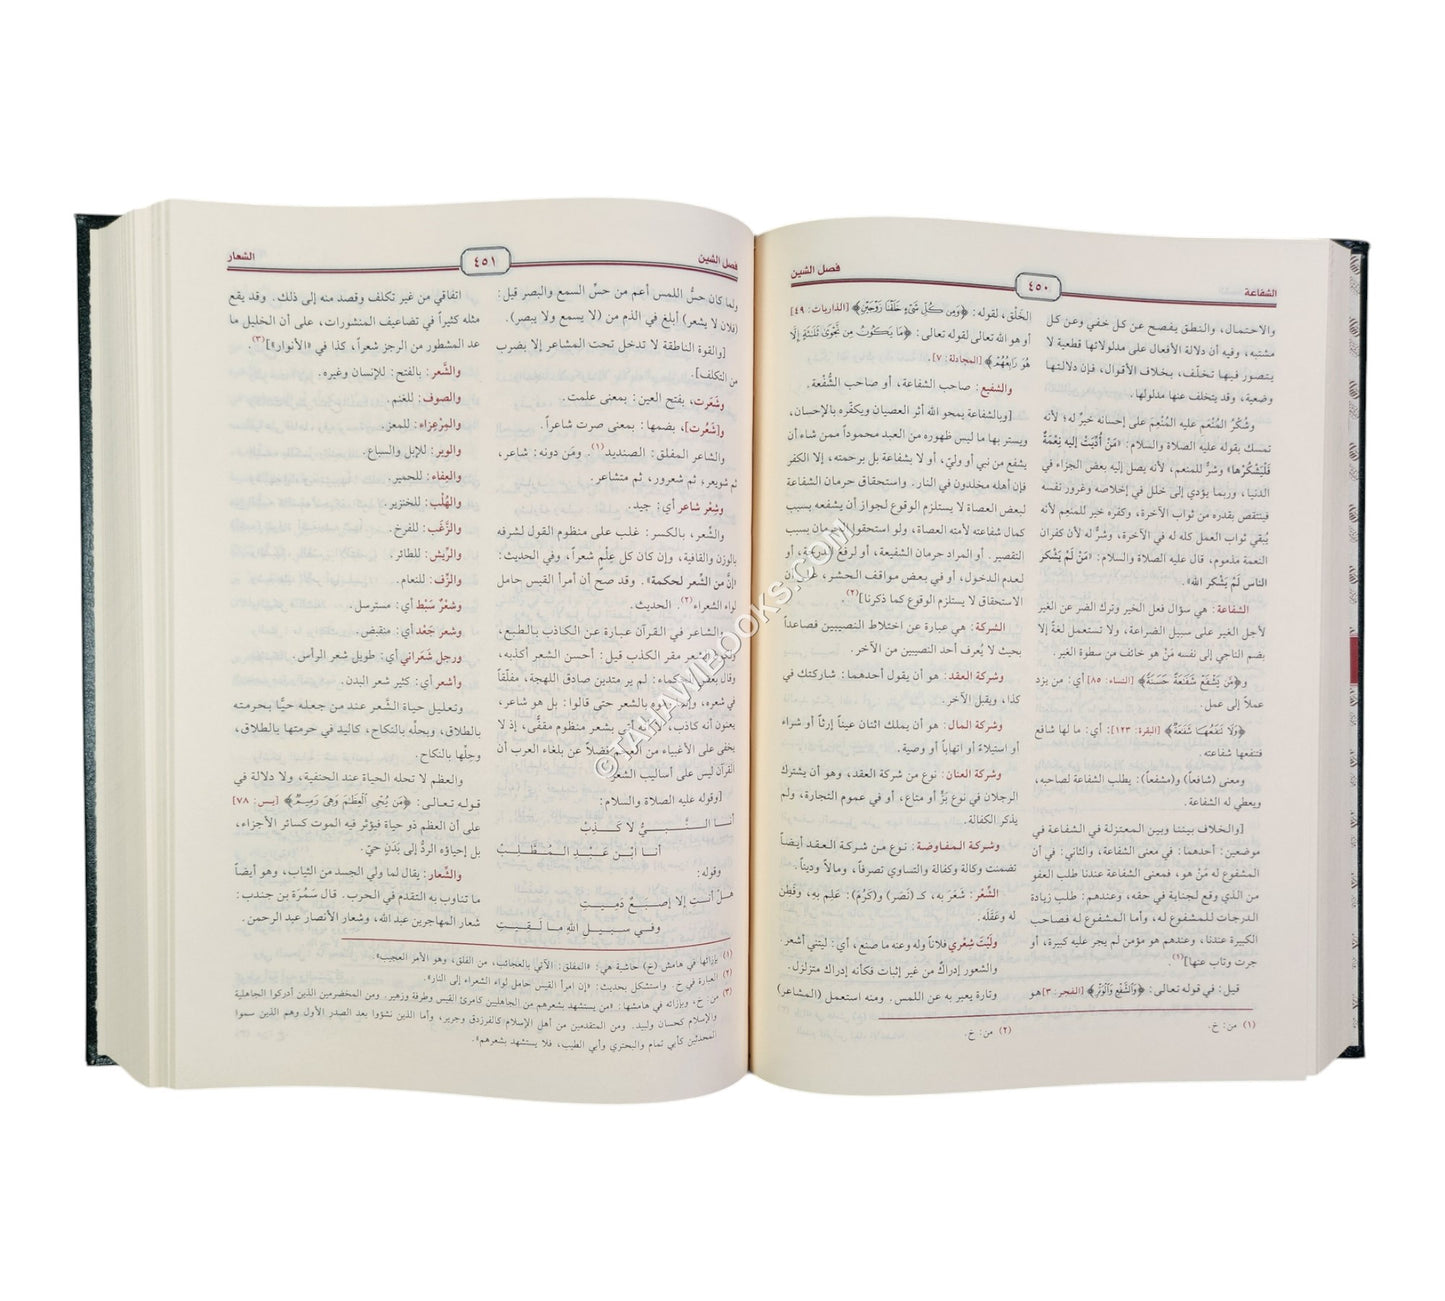 الشفاعة
٤٥٠
فصل الشين
والاحتمال، والنطق يفصح عن كل خفي وعن كل
مشتبه، وفيه أن دلالة الأفعال على مدلولاتها قطعية لا
يتصور فيها تخلّف، بخلاف الأقوال، فإن دلالتها
وضعية، وقد يتخلف عنها مدلولها.
وشُكْرُ المُنْعَم عليه المُنْعِم على إحسانه خيرٌ له؛ لأنه
تمسك بقوله عليه الصلاة والسلام: «مَنْ أُدِّيَتْ إليه نِعْمَةٌ
فَلْيَشْكُرْها» وشرٌّ للمنعم، لأنه يصل إليه بعض الجزاء في
الدنيا، وربما يؤدي إلى خلل في إخلاصه وغرور نفسه
فينتقص بقدره من ثواب الآخرة، وكفره خير للمنعم لأنه
يُبقي ثواب العمل كله له في الآخرة، وشرٌّ له لأن كفران
النعمة مذموم، قال عليه الصلاة والسلام: «مَنْ لَمْ يَشْكر
الناس لَمْ يَشْكر الله».
الشفاعة: هي سؤال فعل الخير وترك الضر عن الغير
لأجل الغير على سبيل الضراعة، ولا تستعمل لغةً إلا
بضم الناجي إلى نفسه مَنْ هو خائف من سطوة الغير.
و﴿مَّن يَشْفَعْ شَفَٰعَةً حَسَنَةً﴾ [النساء: ٨٥] أي: من يزد
عملاً إلى عمل.
﴿وَلَا تَنفَعُهَا شَفَٰعَةٌ﴾ [البقرة: ١٢٣]: أي: ما لها شافع
فتنفعها شفاعته.
ومعنى (شافعاً) و(مشفعاً): يطلب الشفاعة لصاحبه،
ويعطي له الشفاعة.
[والخلاف بيننا وبين المعتزلة في الشفاعة في
موضعين: أحدهما: في معنى الشفاعة، والثاني: في أن
المشفوع له مَنْ هو، فمعنى الشفاعة عندنا طلب العفو
من الذي وقع لجناية في حقه، وعندهم: طلب زيادة
الدرجات للمشفوع له، وأما المشفوع له فصاحب
الكبيرة عندنا، وعندهم هو مؤمن لم يجر عليه كبيرة، أو
جرت وتاب عنها](١).
قيل: في قوله تعالى: ﴿وَالشَّفْعِ وَالْوَتْرِ﴾ [الفجر: ٣] هو
الخَلْق، لقوله: ﴿وَمِن كُلِّ شَيْءٍ خَلَقْنَا زَوْجَيْنِ﴾ [الذاريات: ٤٩]
أو هو الله تعالى لقوله تعالى: ﴿مَا يَكُونُ مِن نَّجْوَىٰ ثَلَٰثَةٍ إِلَّا
هُوَ رَابِعُهُمْ﴾ [المجادلة: ٧].
والشفيع: صاحب الشفاعة، أو صاحب الشُّفْعة.
[وبالشفاعة يمحو الله أثر العصيان ويكفّره بالإحسان،
ويستر بها ما ليس ظهوره من العبد محموداً ممن شاء أن
يشفع من نبي أو وليّ، أو لا بشفاعة بل برحمته، إلا الكفر
فإن أهله مخلدون في النار. واستحقاق حرمان الشفاعة
لبعض العصاة لا يستلزم الوقوع لجواز أن يشفعه بسبب
كمال شفاعته لأمته العصاة، ولو استحقوا الحرمان بسبب
التقصير. أو المراد حرمان الشفيعة، أو لرفع الدرجة، أو
لعدم الدخول، أو في بعض مواقف الحشر، على أن
الاستحقاق لا يستلزم الوقوع كما ذكرنا](٢).
الشركة: هي عبارة عن اختلاط النصيبين فصاعداً
بحيث لا يُعرف أحد النصيبين من الآخر.
وشركة العقد: هو أن يقول أحدهما: شاركتك في
كذا، ويقبل الآخر.
وشركة المال: هو أن يملك اثنان عيناً إرثاً أو شراء
أو استيلاءً أو اتهاباً أو وصية.
وشركة العنان: نوع من شركة العقد، وهو أن يشترك
الرجلان في نوع بَزٍّ أو متاع، أو في عموم التجارة، ولم
يذكر الكفالة.
وشركة المفاوضة: نوع من شركة العقد أيضاً
تضمنت وكالة وكفالة والتساوي تصرفاً، ومالاً وديناً.
الشِّعْر: شَعَرَ به، كـ (نَصَر) و(كَرُمَ): عَلِم به، وفَطِن
له وعَقَله.
ولَيْتَ شِعْري فلاناً وله وعنه ما صنع، أي: ليتني أشعر.
والشعور إدراكٌ من غير إثبات فكأنه إدراك متزلزل.
وتارة يعبر به عن اللمس. ومنه استعمل (المشاعر)
(١) من: خ.
(٢) من: خ.
فصل الشين
٤٥١
الشعار
ولما كان حسُّ اللمس أعم من حسِّ السمع والبصر قيل:
(فلان لا يشعر) أبلغ في الذم من (لا يسمع ولا يبصر).
[والقوة الناطقة لا تدخل تحت المشاعر إلا بضرب
من التكلف].
وشَعَرت، بفتح العين: بمعنى علمت.
و[شَعُرت]، بضمها: بمعنى صرت شاعراً.
والشاعر المفلق: الصنديد(١). ومَن دونه: شاعر،
ثم شويعر، ثم شعرور، ثم متشاعر.
وشِعْر شاعر أي: جيد.
والشِّعر، بالكسر: غلب على منظوم القول لشرفه
بالوزن والقافية، وإن كان كل عِلْم شعراً، وفي الحديث:
«إنَّ من الشِّعر لحكمة». وقد صحَّ أن أمرأ القيس حامل
لواء الشعراء(٢). الحديث.
والشاعر في القرآن عبارة عن الكاذب بالطبع،
الشعر مقر الكذب قيل: أحسن الشعر أكذبه،
وقال بعض الحكماء: لم ير متدين صادق اللهجة، مفلّقاً
في شعره، بالشعر حتى قالوا: بل هو شاعر،
يعنون أنه كاذب، أتى بشعر منظوم مقفًّى، إذ لا
يخفى على الأغبياء من العجم فضلاً عن بلغاء العرب أن
القرآن ليس على أساليب الشعر.
[وقوله عليه الصلاة والسلام:
أنــا الــنَّــبــيُّ لا كَــذِبْ
أنــا ابْــن عَــبْــدِ الــمُــطَّــلِــبْ
وقوله:
هــلْ أنــتِ إلا إصــبَــعٌ دَمِــيــتِ
وفــي ســبــيــلِ الله مــا لَــقــيــتِ
اتفاقي من غير تكلف وقصد منه إلى ذلك. وقد يقع
مثله كثيراً في تضاعيف المنشورات، على أن الخليل ما
عد المشطور من الرجز شعراً، كذا في «الأنوار»](٣).
والشَّعر: بالفتح: للإنسان وغيره.
والصوف: للغنم.
والمِرْعِزاء: للمعز.
والوبر: للإبل والسباع.
والعِفاء: للحمير.
والهُلْب: للخنزير.
والزَّغَب: للفرخ.
والرِّيش: للطائر.
والزِّف: للنعام.
وشعْرٌ سَبْط أي: مسترسل.
وشعر جَعْد أي: منقبض.
ورجل شَعَراني أي: طويل شعر الرأس.
وأشعر أي: كثير شعر البدن.
وتعليل حياة الشَّعر عند من جعله حيًّا بحرمته
بالطلاق، وبحلّه بالنكاح، كاليد في حرمتها بالطلاق،
وحِلّها بالنكاح.
والعظم لا تحله الحياة عند الحنفية، ولا دلالة في
قوله تعالى: ﴿مَن يُحْيِ الْعِظَٰمَ وَهِيَ رَمِيمٌ﴾ [يس: ٧٨]
على أن العظم ذو حياة فيؤثر فيه الموت كسائر الأجزاء،
بل إحياؤه الردُّ إلى بَدَنٍ حيّ.
والشّعار: يقال لما ولي الجسد من الثياب، وهو أيضاً
ما تناوب به التقدم في الحرب. قال سَمُرَة بن جندب:
شعار المهاجرين عبد الله، وشعار الأنصار عبد الرحمن.
(١) بإزائها في هامش (خ) حاشية هي: «المفلق: الآتي بالعجائب، من الفلق، وهو الأمر العجيب».
(٢) العبارة في خ. واستشكل بحديث: «إن امرأ القيس حامل لواء الشعراء إلى النار».
(٣) من: خ، وبإزائه في هامشها: «من يستشهد بشعرهم من الجاهلين كامرئ القيس وطرفة وزهير. ومن المخضرمين الذين أدركوا الجاهلية
والإسلام كحسان ولبيد. ومن المتقدمين من أهل الإسلام كالفرزدق وجرير، وأما الذين نشؤوا بعد الصدر الأول وهم الذين سموا
المحدثين كأبي تمام والبحتري وأبي الطيب، فلا يستشهد بشعرهم».
©TAHAWIBOOKS.COM